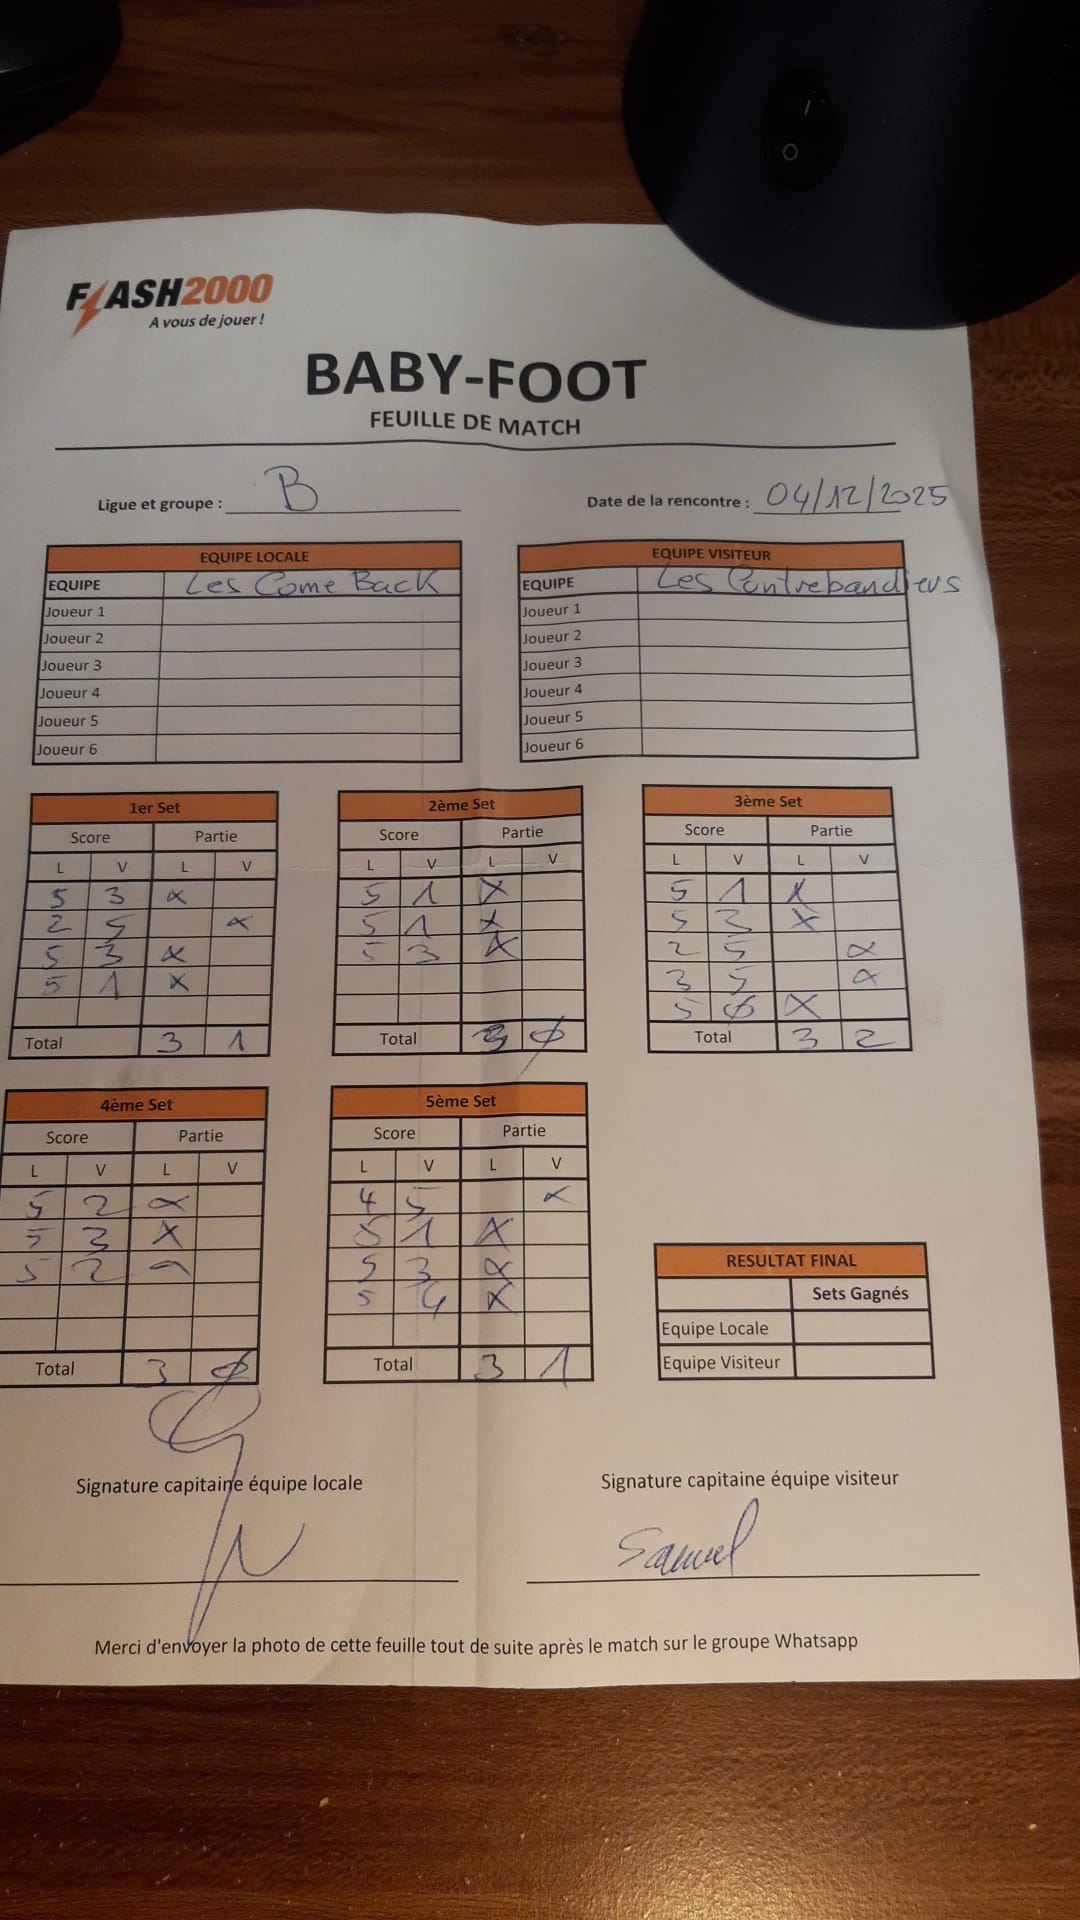 FLASH2000
A vous de jouer !
BABY-FOOT
FEUILLE DE MATCH
Ligue et groupe : B
Date de la rencontre : 04/12/2025
EQUIPE LOCALE
EQUIPE Les Come Back
Joueur 1
Joueur 2
Joueur 3
Joueur 4
Joueur 5
Joueur 6
EQUIPE VISITEUR
EQUIPE Les Contrebandiers
Joueur 1
Joueur 2
Joueur 3
Joueur 4
Joueur 5
Joueur 6
1er Set
Score Partie
L V L V
5 3 x
2 5 x
5 3 x
5 1 x
Total 3 1
2ème Set
Score Partie
L V L V
5 1 x
5 1 x
5 3 x
Total 3 Ø
3ème Set
Score Partie
L V L V
5 1 x
5 3 x
2 5 x
3 5 x
5 Ø x
Total 3 2
4ème Set
Score Partie
L V L V
5 2 x
5 3 x
5 2 x
Total 3 Ø
5ème Set
Score Partie
L V L V
4 5 x
5 1 x
5 3 x
5 4 x
Total 3 1
RESULTAT FINAL
Sets Gagnés
Equipe Locale
Equipe Visiteur
Signature capitaine équipe locale
Signature capitaine équipe visiteur
Samuel
Merci d'envoyer la photo de cette feuille tout de suite après le match sur le groupe Whatsapp